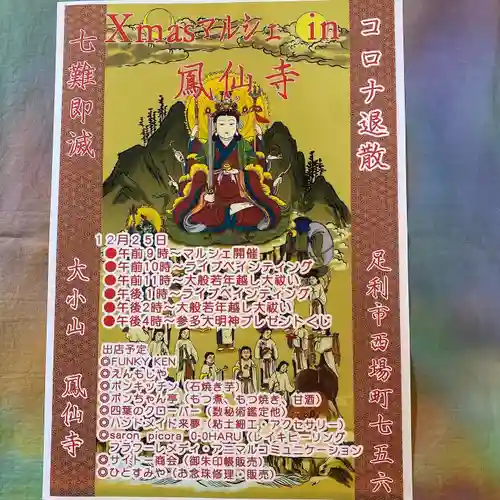 Xmasマルシェ in
鳳仙寺
コロナ退散
足利市西場町七五六
七難即滅
大小山 鳳仙寺
12月25日
●午前9時～マルシェ開催
●午前10時～ライブペインティング
●午前11時～大般若年越し大祓い
●午後1時～ライブペインティング
●午後2時～大般若年越し大祓い
●午後4時～参多大明神プレゼントくじ
出店予定
◎FUNKY KEN
◎えんもじや
◎ポンキッチン（石焼き芋）
◎ポンちゃん亭（もつ煮、もつ焼き、甘酒）
◎四葉のクローバー（数秘術鑑定他）
◎ハンドメイド来夢（粘土細工・アクセサリー）
◎saron picora O-OHARU（レイキヒーリング
フラワーレメディ・アニマルコミュニケーション
商会（御朱印帳販売）
◎ひとすみや（お念珠修理・販売）